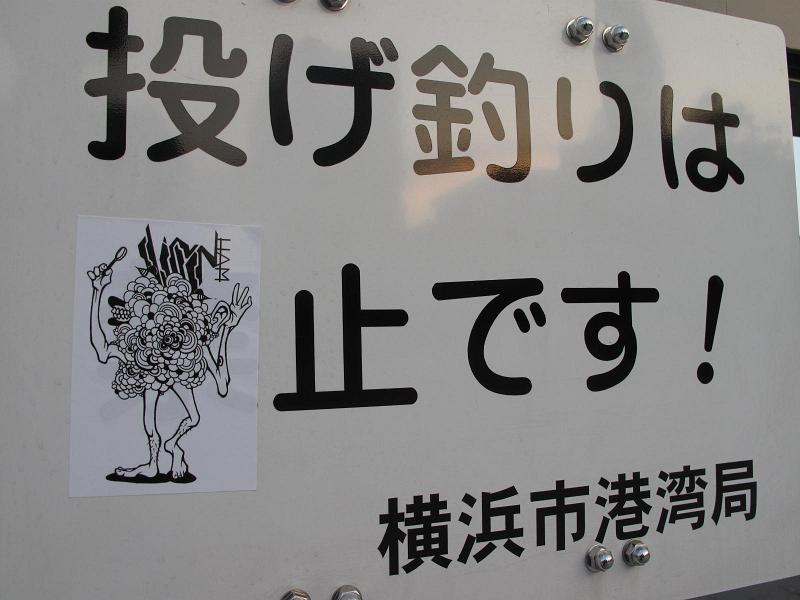 投げ釣りは
止です!
横浜市港湾局